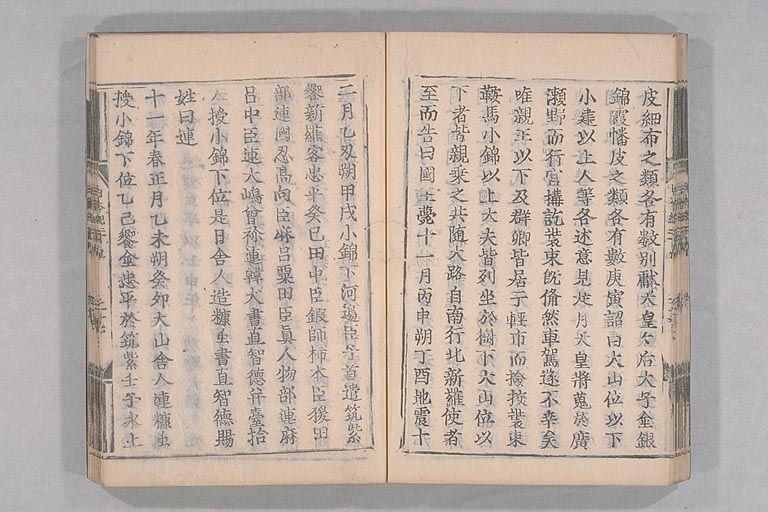 皮細布之類各有數別獻天皇々后大子金銀
錦霞幡皮之類各有數庚寅詔曰大山位以下
小建以上人等各述意見是月天皇將蒐於廣
瀬野而行宮搆訖裝束既俻然車駕遂不幸矣
唯親王以下及群卿皆居于輕市而撿挍裝束
鞍馬小錦以上大夫皆列坐於樹下大山位以
下者皆親乗之共随大路自南行北新羅使者
至而告曰國王薨十一月丙申朔丁酉地震十
二月乙丑朔甲戌小錦下河邊臣子首遣筑紫
饗新羅客忠平癸巳田中臣鍜師柿本臣猨田
部連國忍髙向臣麻呂粟田臣眞人物部連麻
呂中臣連大嶋曽祢連韓犬書直智德并壹拾
人授小錦下位是日舎人造糠虫書直智德賜
姓曰連
十一年春正月乙未朔癸卯大山舎人連糠虫
授小錦下位乙巳饗金忠平於筑紫壬子氷上